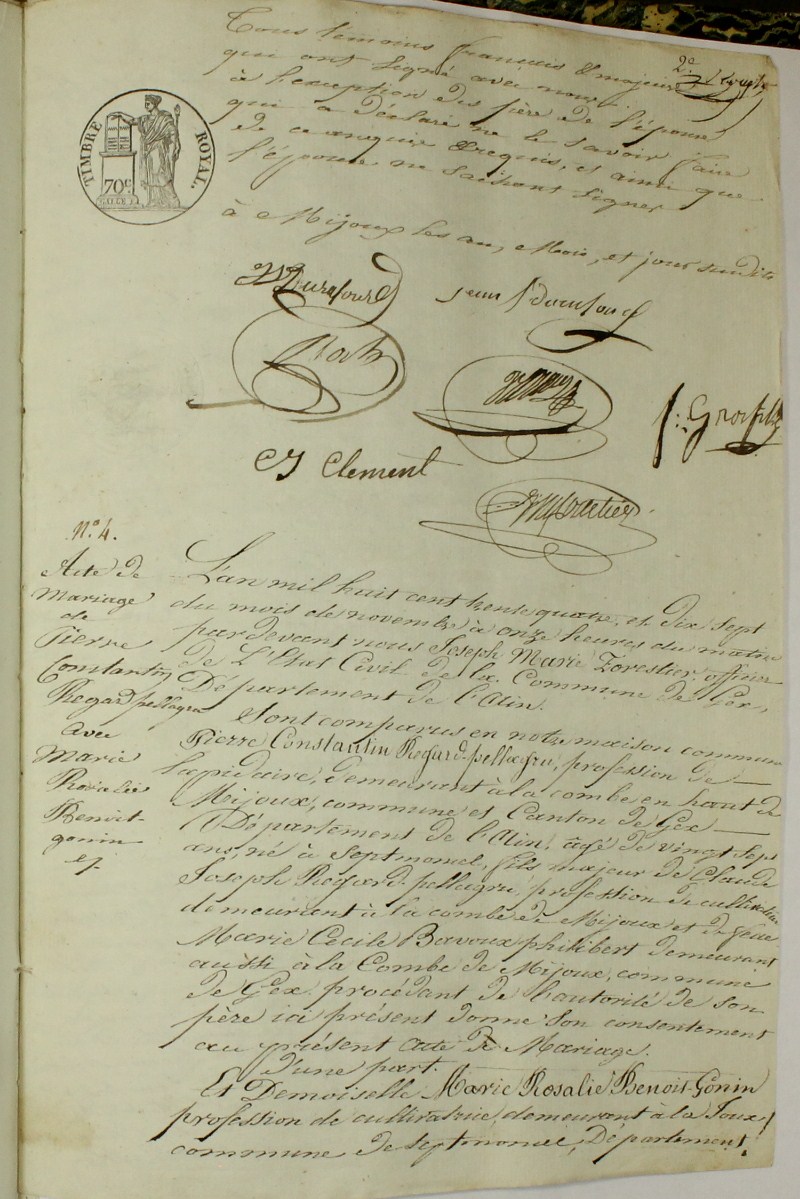 TIMBRE ROYAL.
70c
Tous témoins français & majeurs
qui ont signé avec nous
à l'exception des père de l'épouse
qui a déclaré ne le savoir faire
de ce enquis & requis, et ainsi que
l'épouse ne sachant signer
à Mijoux les an, Mois, et jour susdits
jean
J Clement
f: Grosfilley
N.º 4.
Acte de
Mariage
de
Pierre
Constantin
Regard pellagru
avec
Marie
Rosalie
Benoit-
gonin
L'an mil huit cent trente quatre, et dix sept
du mois de novembre à onze heures du matin
pardevant nous Joseph Marie Forestier officier
de L'Etat Civil de la Commune de Gex,
Département de l'Ain.
Sont comparus en notre maison commune
Pierre Constantin Regard-pellagru, profession de
lapidaire, demeurant à la combe en haut de
Mijoux, commune et Canton de Gex
Département de l'Ain, âgé de vingt sept
ans, né à Septmoncel, fils majeur de Claude
Joseph Regard-pellagru, profession de cultivateur
demeurant à la combe de Mijoux et de feue
Marie Cécile Bavoux philibert demeurant
aussi à la Combe de Mijoux, commune
de Gex procédant de l'autorité de son
père ici présent donne son consentement
au présent acte de Mariage.
d'une part.
Et Demoiselle Marie Rosalie Benoit-Gonin
profession de cultivatrice, demeurant à la Joux,
commune de Septmoncel, Département